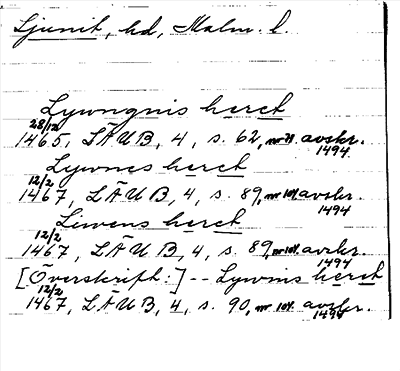 Ljunit, hd, Malm. l.
Lywngnis heret
28/12
1465, LÄUB, 4, s. 62, nr 71. avskr. 1494
Lywnes heret
12/2
1467, LÄUB, 4, s. 89, nr 104. avskr. 1494
Liwens heret
12/2
1467, LÄUB, 4, s. 89, nr 104. avskr. 1494
[Överskrift:] -- Lywins heret
12/2
1467, LÄUB, 4, s. 90, nr 104. avskr. 1494